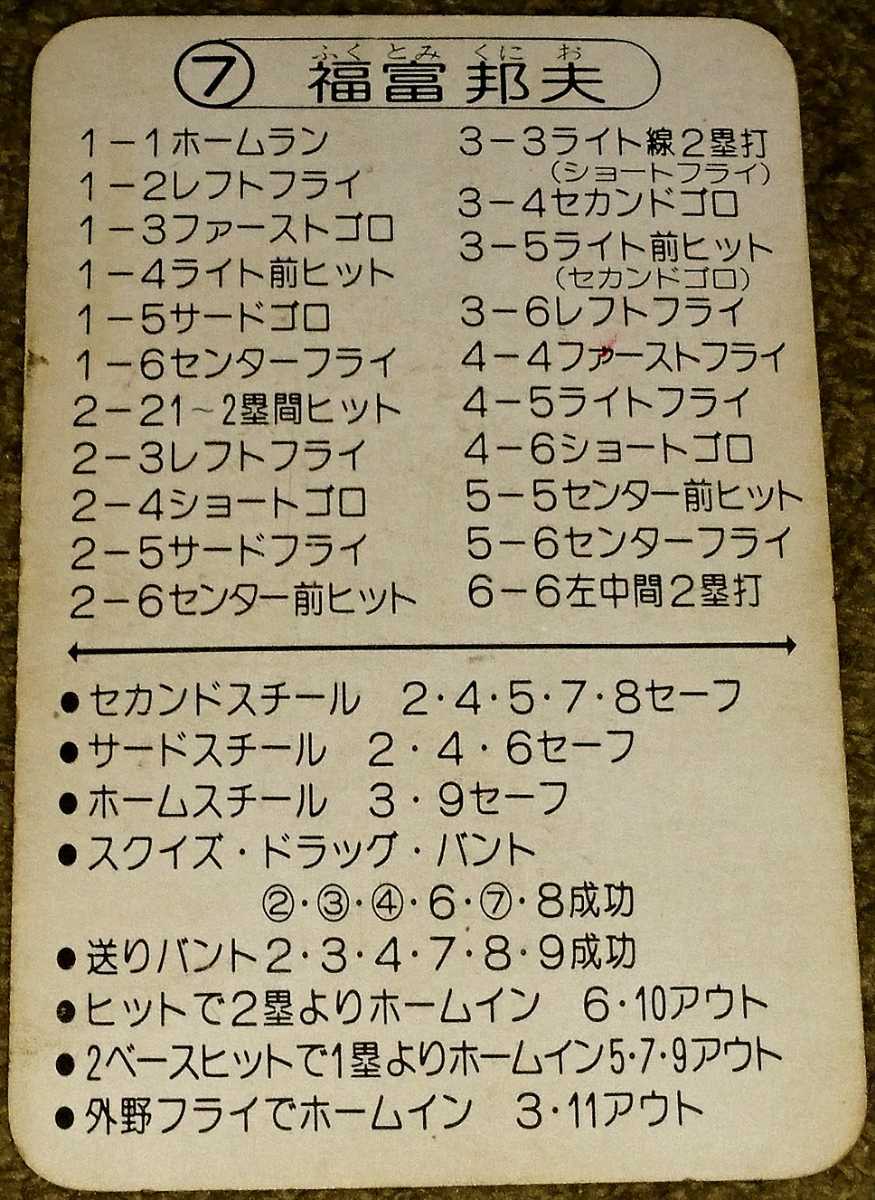 ふくとみ くにお
⑦ 福富邦夫
1-1ホームラン
1-2レフトフライ
1-3ファーストゴロ
1-4ライト前ヒット
1-5サードゴロ
1-6センターフライ
2-21~2塁間ヒット
2-3レフトフライ
2-4ショートゴロ
2-5サードフライ
2-6センター前ヒット
3-3ライト線2塁打
(ショートフライ)
3-4セカンドゴロ
3-5ライト前ヒット
(セカンドゴロ)
3-6レフトフライ
4-4ファーストフライ
4-5ライトフライ
4-6ショートゴロ
5-5センター前ヒット
5-6センターフライ
6-6左中間2塁打
●セカンドスチール 2・4・5・7・8セーフ
●サードスチール 2・4・6セーフ
●ホームスチール 3・9セーフ
●スクイズ・ドラッグ・バント
②・③・④・6・⑦・8成功
●送りバント2・3・4・7・8・9成功
●ヒットで2塁よりホームイン 6・10アウト
●2ベースヒットで1塁よりホームイン5・7・9アウト
●外野フライでホームイン 3・11アウト